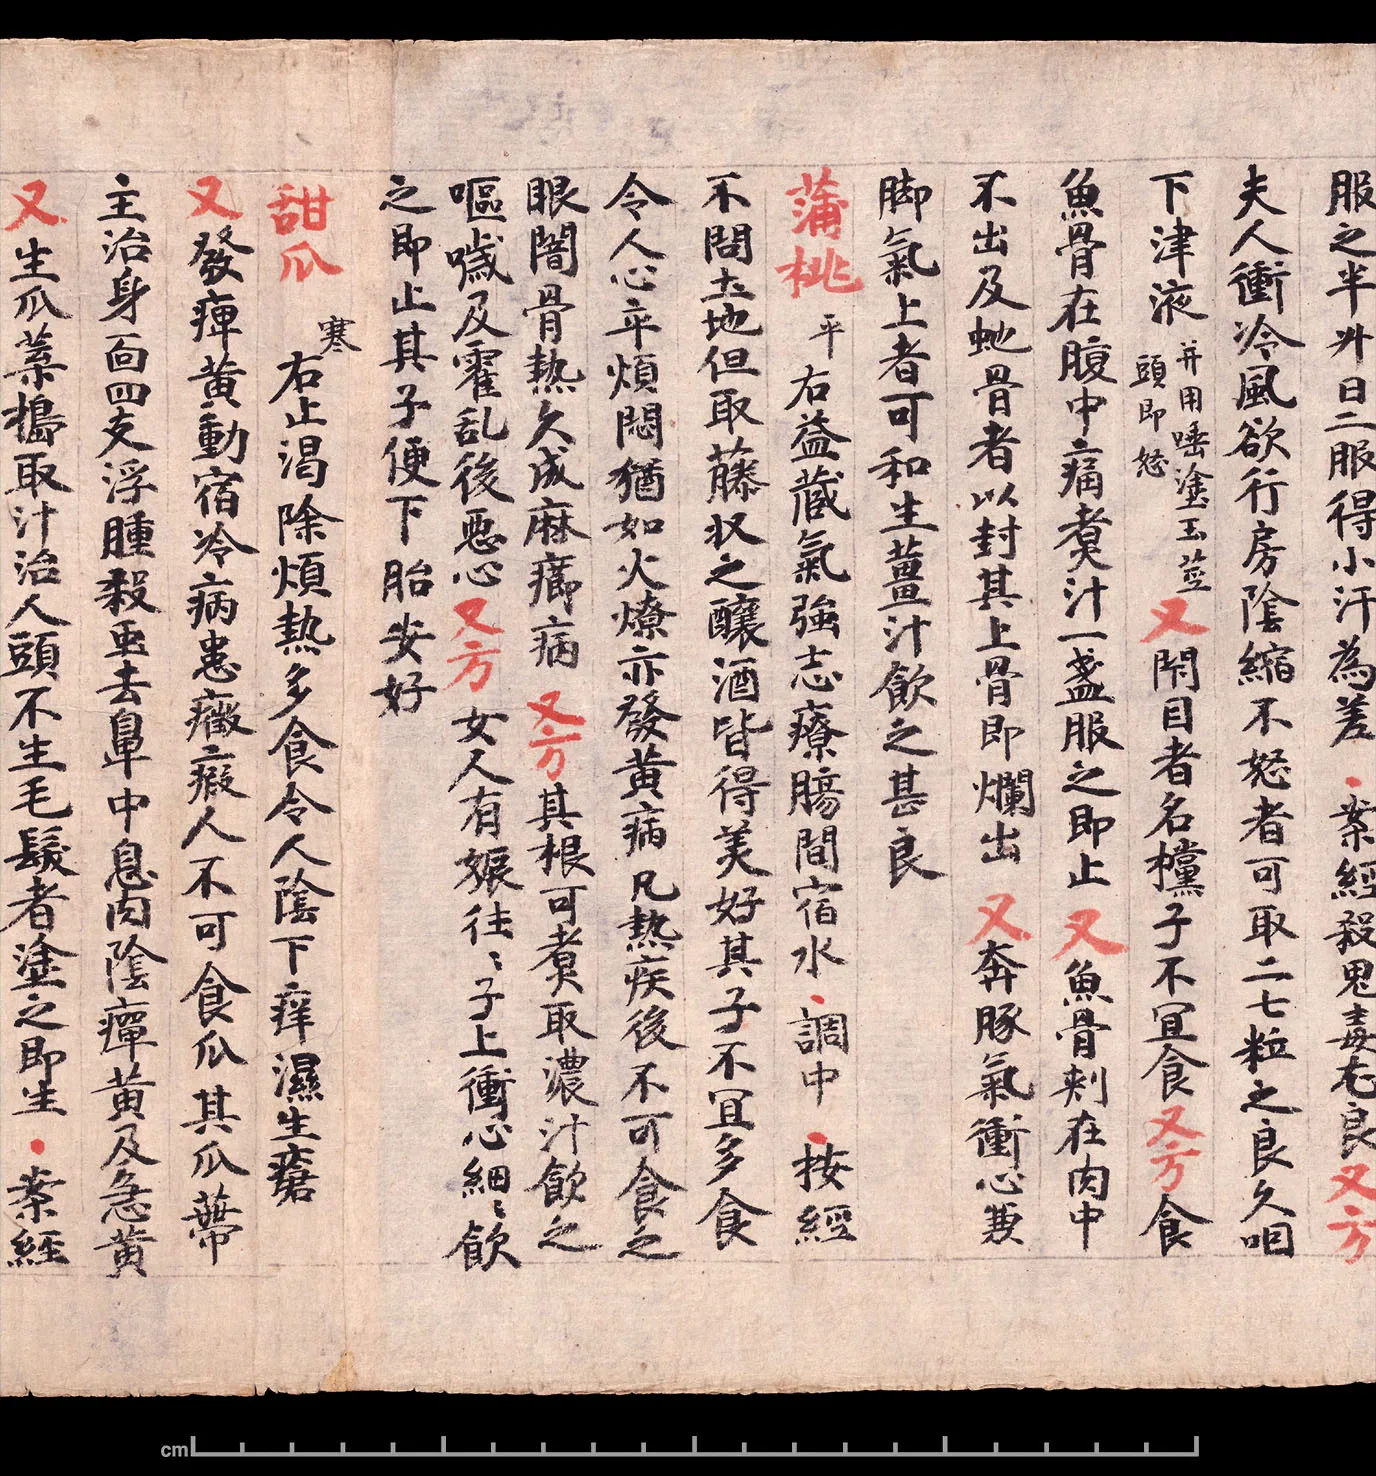 服之半升日二服得小汗為差案經殺鬼毒尤良又方
夫人衝冷風欲行房陰縮不怒者可取二七粒之良久咽
下津液并用唾塗玉莖頭即怒又閇目者名欓子不宜食又方食
魚骨在腹中痛煑汁一盞服之即止又魚骨刾在肉中
不出及虵骨者以封其上骨即爛出又奔豚氣衝心兼
脚氣上者可和生薑汁飲之甚良
蒲桃平右益藏氣強志療腸間宿水調中按經
不問土地但取藤収之釀酒皆得美好其子不宜多食
令人心卒煩悶猶如火燎亦發黄病凡熱疾後不可食之
眼闇骨熱久成麻癤病又方其根可煑取濃汁飲之
嘔噦及霍乱後惡心又方女人有娠往〻子上衝心細〻飲
之即止其子便下胎安好
甜瓜寒右止渴除煩熱多食令人陰下痒濕生瘡
又發痺黄動宿冷病患癥瘕人不可食瓜其瓜蔕
主治身面四支浮腫殺蟲去鼻中息肉陰癉黄及急黄
又生瓜葉擣取汁治人頭不生毛髮者塗之即生案經